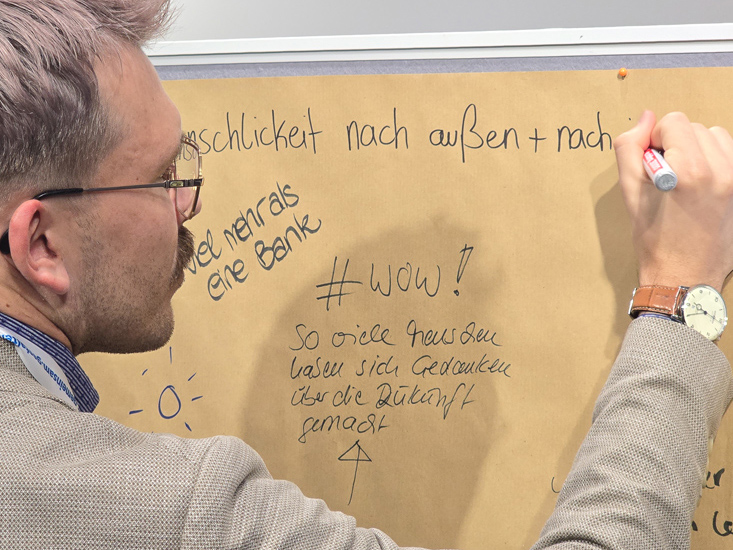 nschlickeit nach außen + nach
viel mehr als
eine Bank
#WOW!
So viele Menschen
haben sich Gedanken
über die Zukunft
gemacht